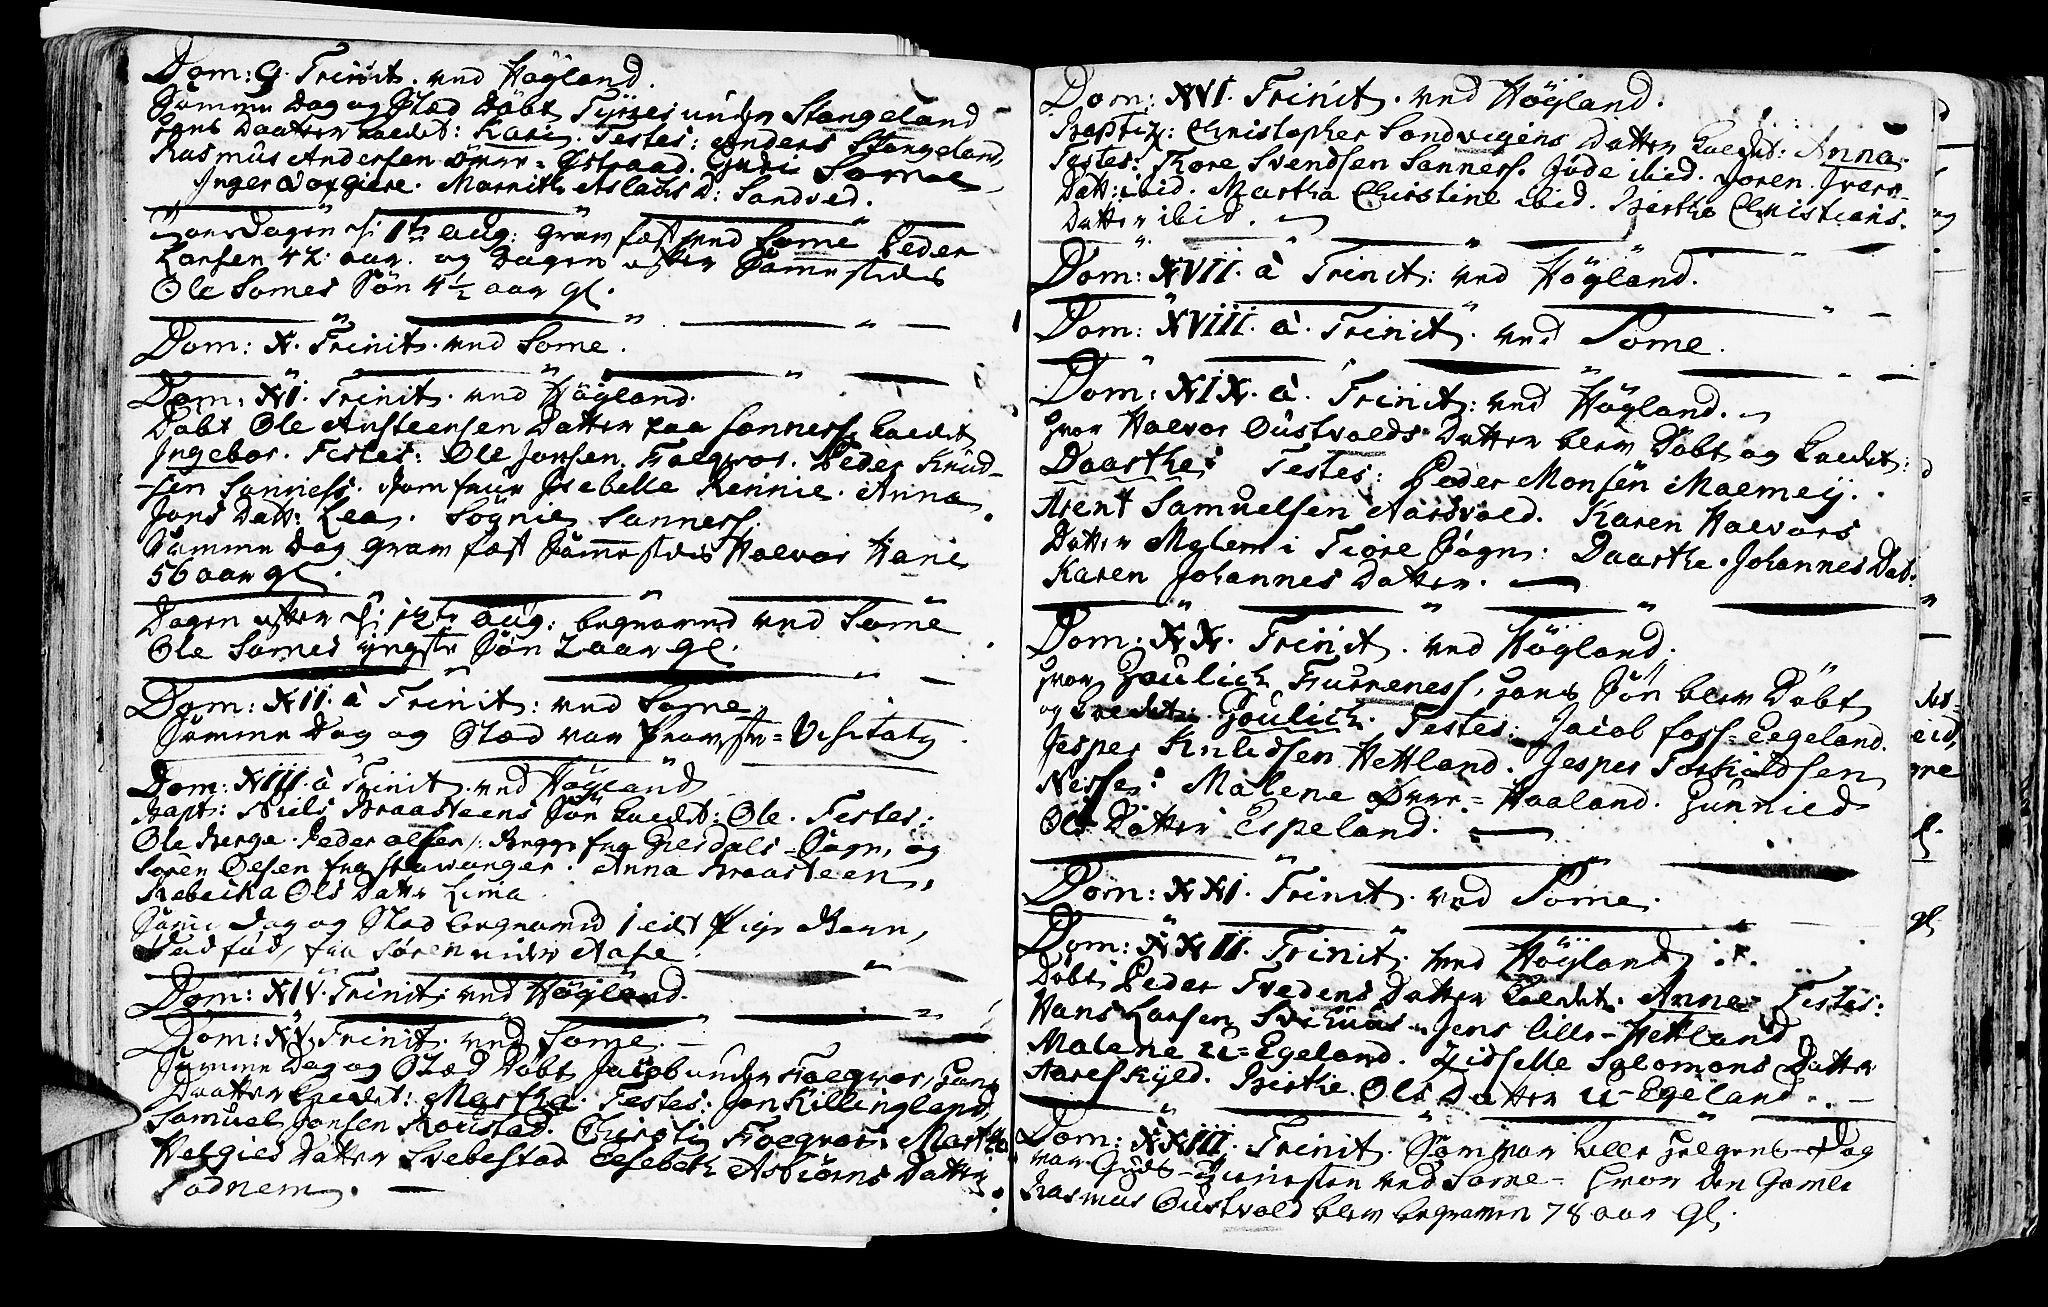 Dom: 9. Trinit. ved Höyland.
Samme Dag og Stæd Döbt Tyrres under Stangeland
hans Daatter kaldt: Kari Testes: Anders Stangeland,
Rasmus Andersen över= Östraad. Guri Some
Inger ibid. Marrith Aslachs D: Sandved.
Onsdagen d: 1te Aug: Gravfæst ved Some Peder
Larsen 42 aar. og Dagen efter Sammestædes
Ole Somes Sön 4½ aar gl.
Dom: X. Trinit. ved Some.
Dom: XI. Trinit. ved Höyland.
Döbt Ole Ansteensen Datter paa Sanness kaldt
Ingebor. Testes: Ole Jonsen Foegvor. Peder Knud-
sen Sanness. Jomfrue Isebelle Rennie. Anna
Jons Datt: Lea. Sognie Sanness.
Samme Dag Gravfæst Sammestædes Halvor Hane
56 aar gl.
Dagen efter d: 12te Aug: begraved ved Some
Ole Somes yngste Sön 2 aar gl.
Dom: XII. à Trinit: ved Some
Samme Dag og Stæd var Provste=Visitatz.
Dom: XIII. à Trinit. ved Höyland
Bapt: Niels Braasteens Sön kaldt: Ole. Testes:
Ole Berge. Peder Olsen fra Giesdals=Sogn, og
Sören Olsen fra Stavanger. Anna Braasteen,
Rebecka Ols Datt: Lima
Samme Dag og Stæd begraved 1 lidt Pige Barn,
Död föd, fra Sören under Aase.
Dom: XIV. Trinit: ved Höyland.
Dom: XV. Trinit. ved Some. —
Samme Dag og Stæd Döbt Jacob under Foegvor, hans
Daatter kaldet: Martha. Testes: Jon Killingland,
Samuel Jonsen Roustad. Christi Foegvor. Martha
Helgies Datter Svebestad Elsebeth Asbiörns Datter
Todnem. —
Dom: XVI. Trinit. ved Höyland.
Baptiz: Christopher Sandvigens Datter kaldet: Anna.
Testes: Tore Svendsen Sanness. Jöde ibid. Joren Ivers-
Datt: ibid. Martha Christine ibid. Birthe Christians-
Datter ibid. —
Dom: XVII. à Trinit: ved Höyland.
Dom: XVIII. à. Trinit. ved Some.
Dom: XIX. à. Trinit: ved Höyland. —
Hvor Halvor Gustvolds Datter blev Döbt og kaldet:
Daarthe: Testes: Peder Monsen Maemey.
Arent Samuelsen Aarsvold. Karen Halvors
Datter Mælem i Tiore Sogn: Daarthe Johannes Dat:
Karen Johannes Datter. —
Dom: XX. Trinit. ved Höyland.
Hvor Goulich Furreness, hans Sön blev Döbt
og kaldet: Goulich. Testes: Jacob Foss=Eegeland.
Jesper Knudsen Hettland. Jesper Torkildsen
Nesse: Malene Över=Haaland. Gunnied
Ols Datter Espeland. —
Dom: XXI. Trinit. ved Some.
Dom: XXII. Trinit. ved Höyland.
Döbt Peder Tvedens Datter kaldet: Anne. Testes:
Hans Larsen Jens lille=Hettland,
Malene u=Egeland. Zidselle Salomons Datter
Aareskyld. Birthe Ols Datter u-Egeland. —
Dom: XXIII. Trinit. Som var Alle Helgens-Dag
var Guds-Tienesten ved Some- hvor den Gamle
Rasmus Gustvold blev begraven 78 aar gl.